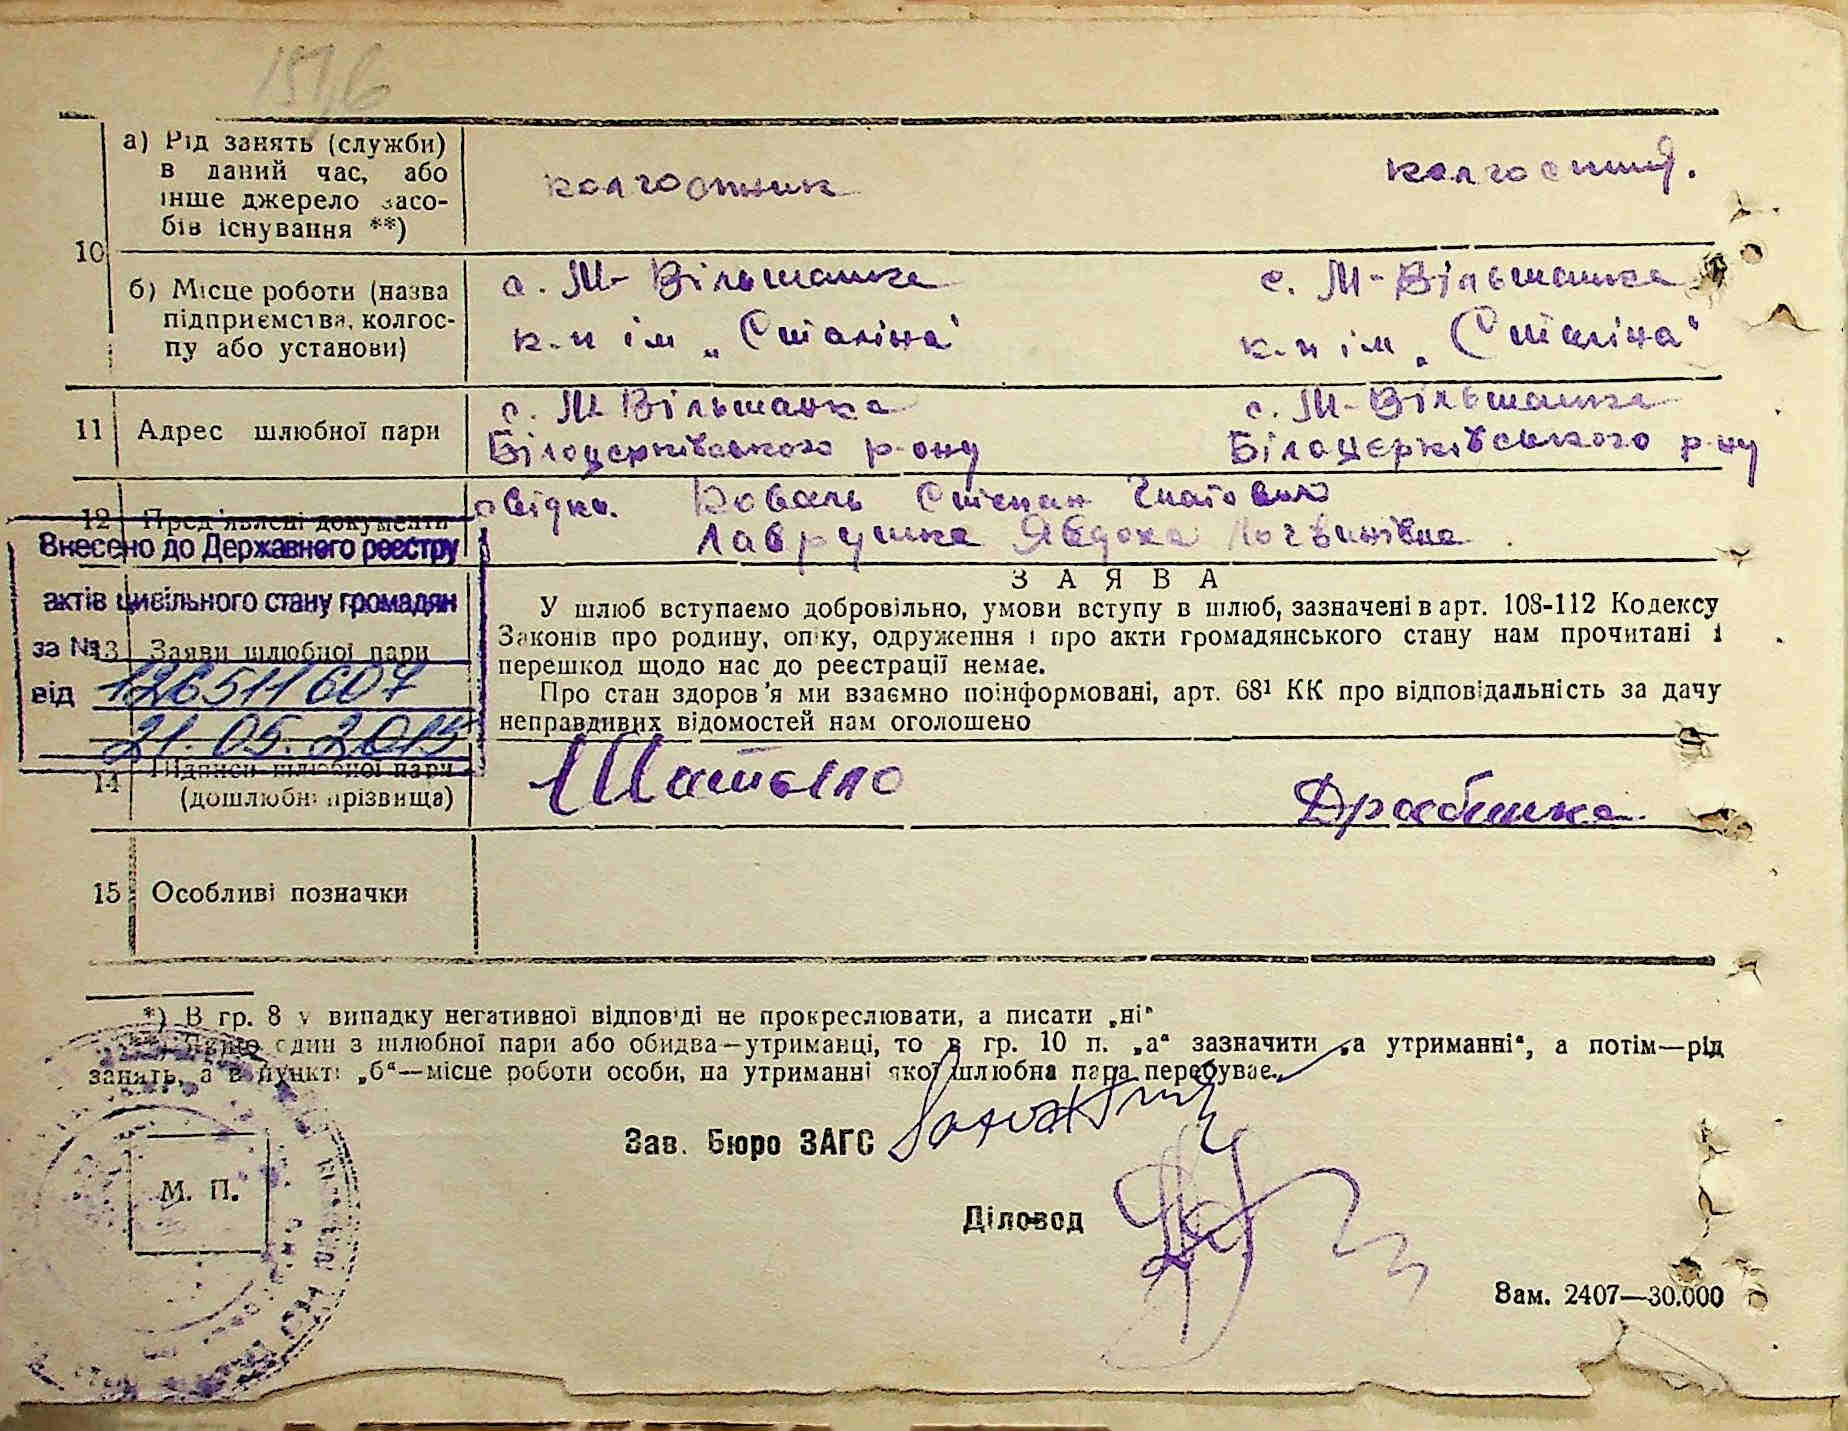 1576
а) Рід занять (служби) в даний час, або інше джерело засобів існування **)
колгоспник
колгоспниця.
10
б) Місце роботи (назва підприємства, колгоспу або установи)
с. М-Вільшанка
с. М-Вільшанка
к-п ім „Сталіна“
к-п ім „Сталіна“
11 Адрес шлюбної пари
с. М-Вільшанка
с. М-Вільшанка
Білоцерківського р-ону
Білоцерківського р-ну
12 Пред'явлені документи
свідки. Коваль Степан Гнатович
Лаврушка Явдоха Логвинівна
Внесено до Державного реєстру
актів цивільного стану громадян
за № 126511607
від 21.05.2015
13 Заяви шлюбної пари
ЗАЯВА
У шлюб вступаємо добровільно, умови вступу в шлюб, зазначені в арт. 108-112 Кодексу
Законів про родину, опіку, одруження і про акти громадянського стану нам прочитані і
перешкод щодо нас до реєстрації немає.
Про стан здоров'я ми взаємно поінформовані, арт. 68¹ КК про відповідальність за дачу
неправдивих відомостей нам оголошено
14 Підписи шлюбної пари
(дошлюбні прізвища)
Шатыло
Драбишка
15 Особливі позначки
*) В гр. 8 у випадку негативної відповіді не прокреслювати, а писати „ні“
**) Якщо один з шлюбної пари або обидва—утриманці, то в гр. 10 п. „а“ зазначити „а утриманні“, а потім—рід
занять, а в пункті „б“—місце роботи особи, на утриманні якої шлюбна пара перебуває.
Зав. Бюро ЗАГС
М. П.
Діловод
Зам. 2407—30.000